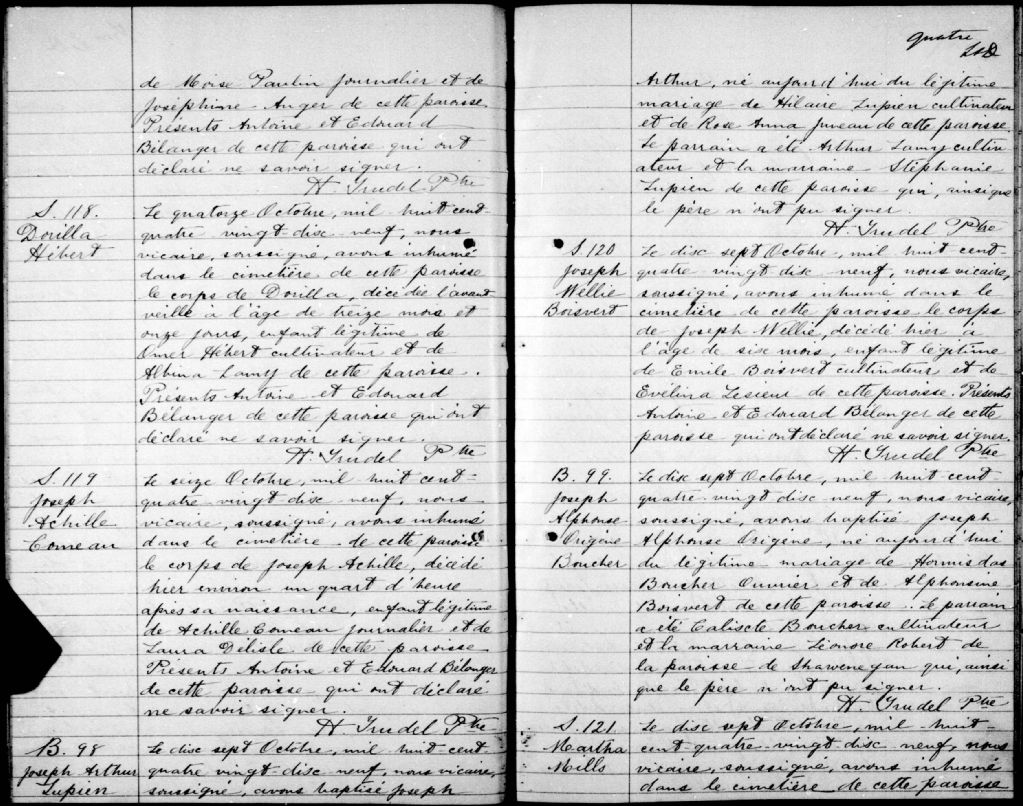 de Moïse Paulin journalier et de
Joséphine Auger de cette paroisse
Présents Antoine et Edouard
Bélanger de cette paroisse qui ont
déclaré ne savoir signer.
H. Trudel Ptre
S. 118.
Dorilla
Hébert
Le quatorze Octobre, mil huit cent-
quatre vingt-disc neuf, nous
vicaire, soussigné, avons inhumé
dans le cimetière de cette paroisse
le corps de Dorilla, décédée l'avant
veille à l'âge de treize mois et
onze jours, enfant légitime de
Omer Hébert cultivateur et de
Albina Lamy de cette paroisse.
Présents Antoine et Edouard
Bélanger de cette paroisse qui ont
déclaré ne savoir signer.
H. Trudel Ptre
S. 119
Joseph
Achille
Comeau
Le seize Octobre, mil huit cent-
quatre vingt disc neuf, nous
vicaire, soussigné, avons inhumé
dans le cimetière de cette paroisse
le corps de Joseph Achille, décédé
hier environ un quart d'heure
après sa naissance, enfant légitime
de Achille Comeau journalier et de
Laura Délisle de cette paroisse
Présents Antoine et Edouard Bélanger
de cette paroisse qui ont déclaré
ne savoir signer.
H. Trudel Ptre
B. 98
Joseph Arthur
Lupien
Le disc sept Octobre, mil huit cent
quatre vingt-disc neuf, nous vicaire,
soussigné, avons baptisé Joseph
quatre
Arthur, né aujourd'hui du légitime
mariage de Hilaire Lupien cultivateur
et de Rose Anna Juneau de cette paroisse.
Le parrain a été Arthur Lamy cultiv-
ateur et la marraine Stéphanie
Lupien de cette paroisse qui, ainsi que
le père n'ont pu signer.
H. Trudel Ptre
S. 120
Joseph
Wellie
Boisvert
Le disc sept Octobre, mil huit cent-
quatre vingt disc neuf, nous vicaire,
soussigné, avons inhumé dans le
cimetière de cette paroisse le corps
de Joseph Wellie, décédé hier à
l'âge de six mois, enfant légitime
de Emile Boisvert cultivateur et de
Evélina Lesieur de cette paroisse. Présents
Antoine et Edouard Bélanger de cette
paroisse qui ont déclaré ne savoir signer.
H. Trudel Ptre
B. 99.
Joseph
Alphonse
Origène
Boucher
Le disc sept Octobre, mil huit cent-
quatre vingt disc neuf, nous vicaire,
soussigné, avons baptisé Joseph
Alphonse Origène, né aujourd'hui
du légitime mariage de Hormisdas
Boucher Ouvrier et de Alphonsine
Boisvert de cette paroisse. Le parrain
a été Caliscte Boucher cultivateur
et la marraine Léonore Robert de
la paroisse de Shawenegan qui, ainsi
que le père n'ont pu signer.
H. Trudel Ptre
S. 121
Martha
Mills
Le disc sept Octobre, mil huit
cent quatre-vingt disc neuf, nous
vicaire, soussigné, avons inhumé
dans le cimetière de cette paroisse